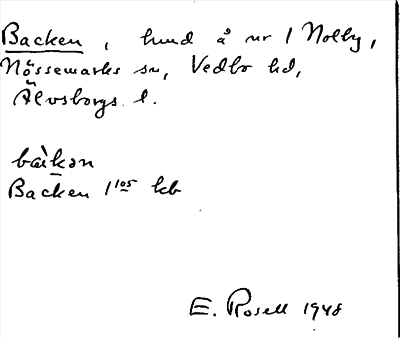 Backen, hmd å nr 1 Nolby,
Nössemarks sn, Vedbo hd,
Älvsborgs l.
bàkən
Backen 1¹⁰⁵ kb
E. Rosell 1948